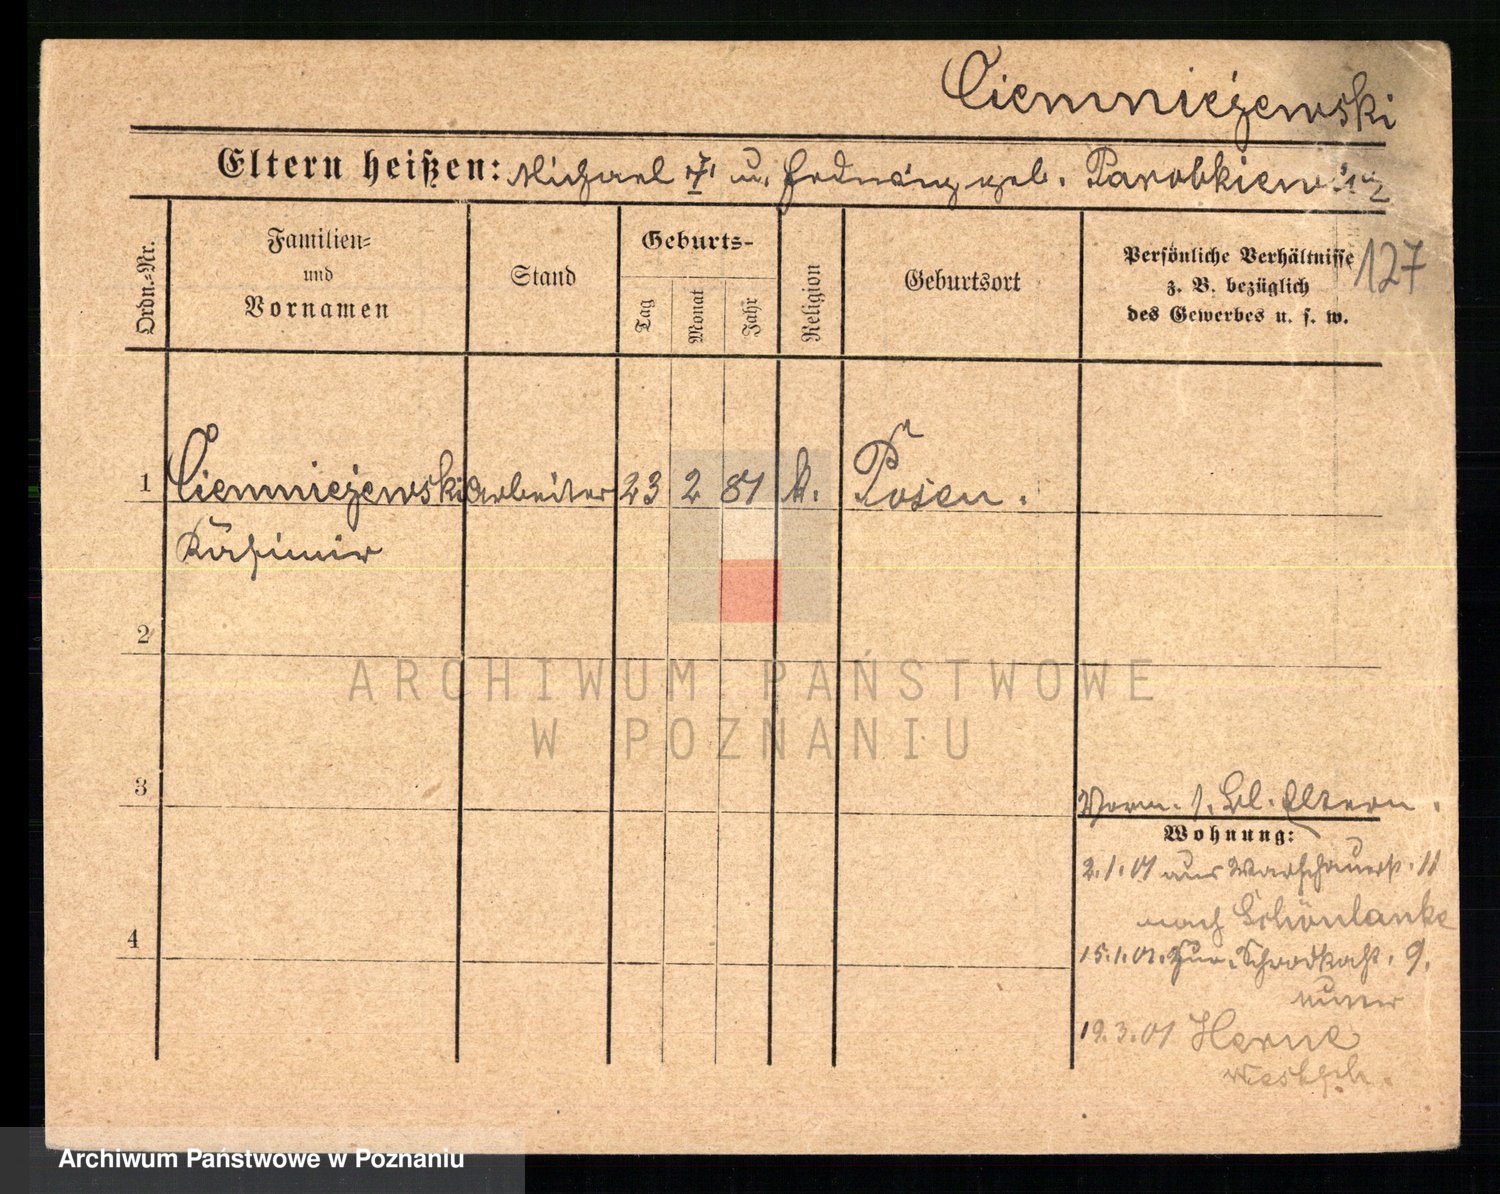 Ciemnieżewski
Eltern heißen: Michael † u. geb. Parobkiewicz
Ordn.-Nr.
Familien-
und
Vornamen
Stand
Geburts-
Tag
Monat
Jahr
Religion
Geburtsort
Persönliche Verhältnisse
z. B. bezüglich
des Gewerbes u. s. w.
127
1 Ciemnieżewski Arbeiter 23 2 81 k. Posen.
Kasimir
2
3
4
Vorm. s. Bl. Eltern.
Wohnung:
2.1.01 aus Warschauerst. 11
nach Schönlanke
15.1.01. Zur. Schrodkast. 9.
19.3.01 Herne
Westph.
ARCHIWUM PAŃSTWOWE
W POZNANIU
Archiwum Państwowe w Poznaniu